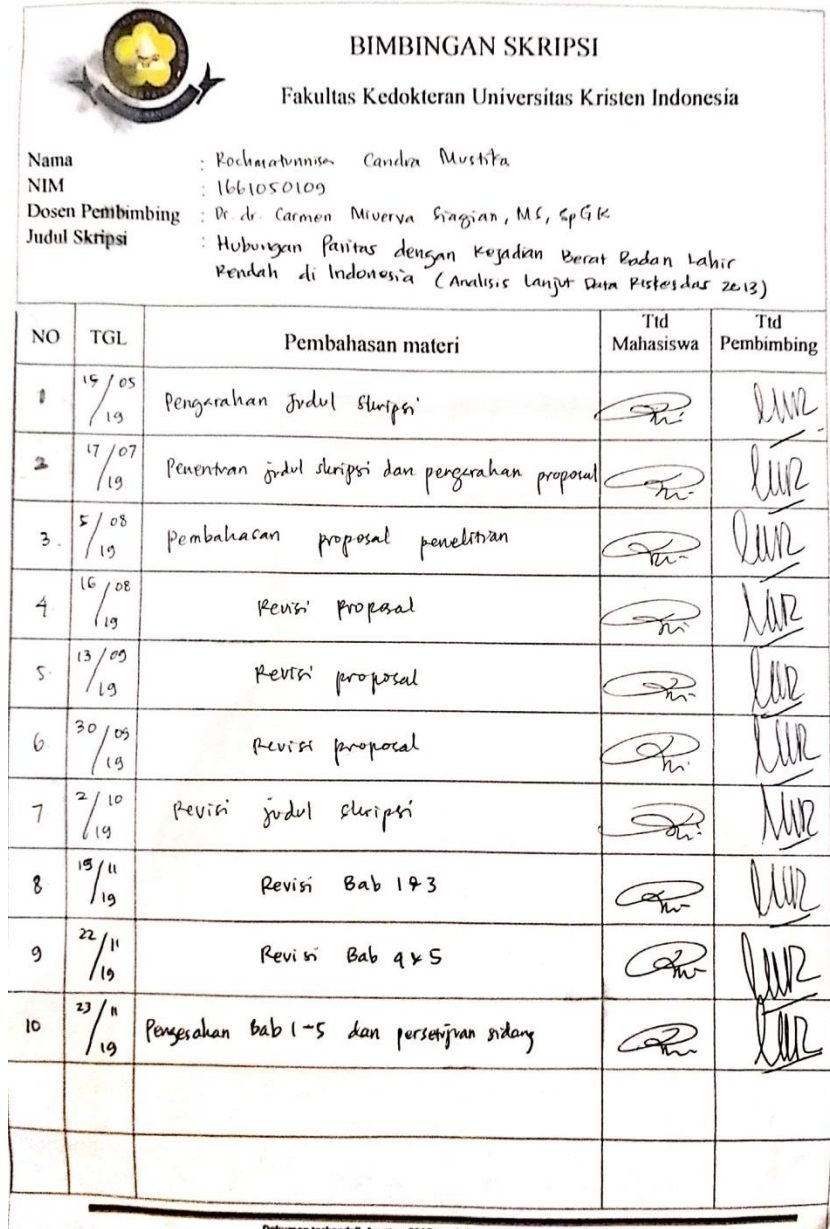 BIMBINGAN SKRIPSI
Fakultas Kedokteran Universitas Kristen Indonesia
Nama : Rochmatunnisa Candra Mustika
NIM : 1661050109
Dosen Pembimbing : Dr. dr. Carmen Miverva Siagian, MS, SpGK
Judul Skripsi : Hubungan Paritas dengan Kejadian Berat Badan Lahir
Rendah di Indonesia (Analisis Lanjut Data Riskesdas 2013)
NO TGL Pembahasan materi Ttd Mahasiswa Ttd Pembimbing
1 15/05/19 Pengarahan Judul Skripsi
2 17/07/19 Penentuan judul skripsi dan pengarahan proposal
3. 5/08/19 Pembahasan proposal penelitian
4 16/08/19 Revisi Proposal
5. 13/09/19 Revisi proposal
6 30/09/19 Revisi proposal
7 2/10/19 Revisi judul skripsi
8 15/11/19 Revisi Bab 1&3
9 22/11/19 Revisi Bab 4&5
10 23/11/19 Pengesahan Bab 1-5 dan persetujuan sidang